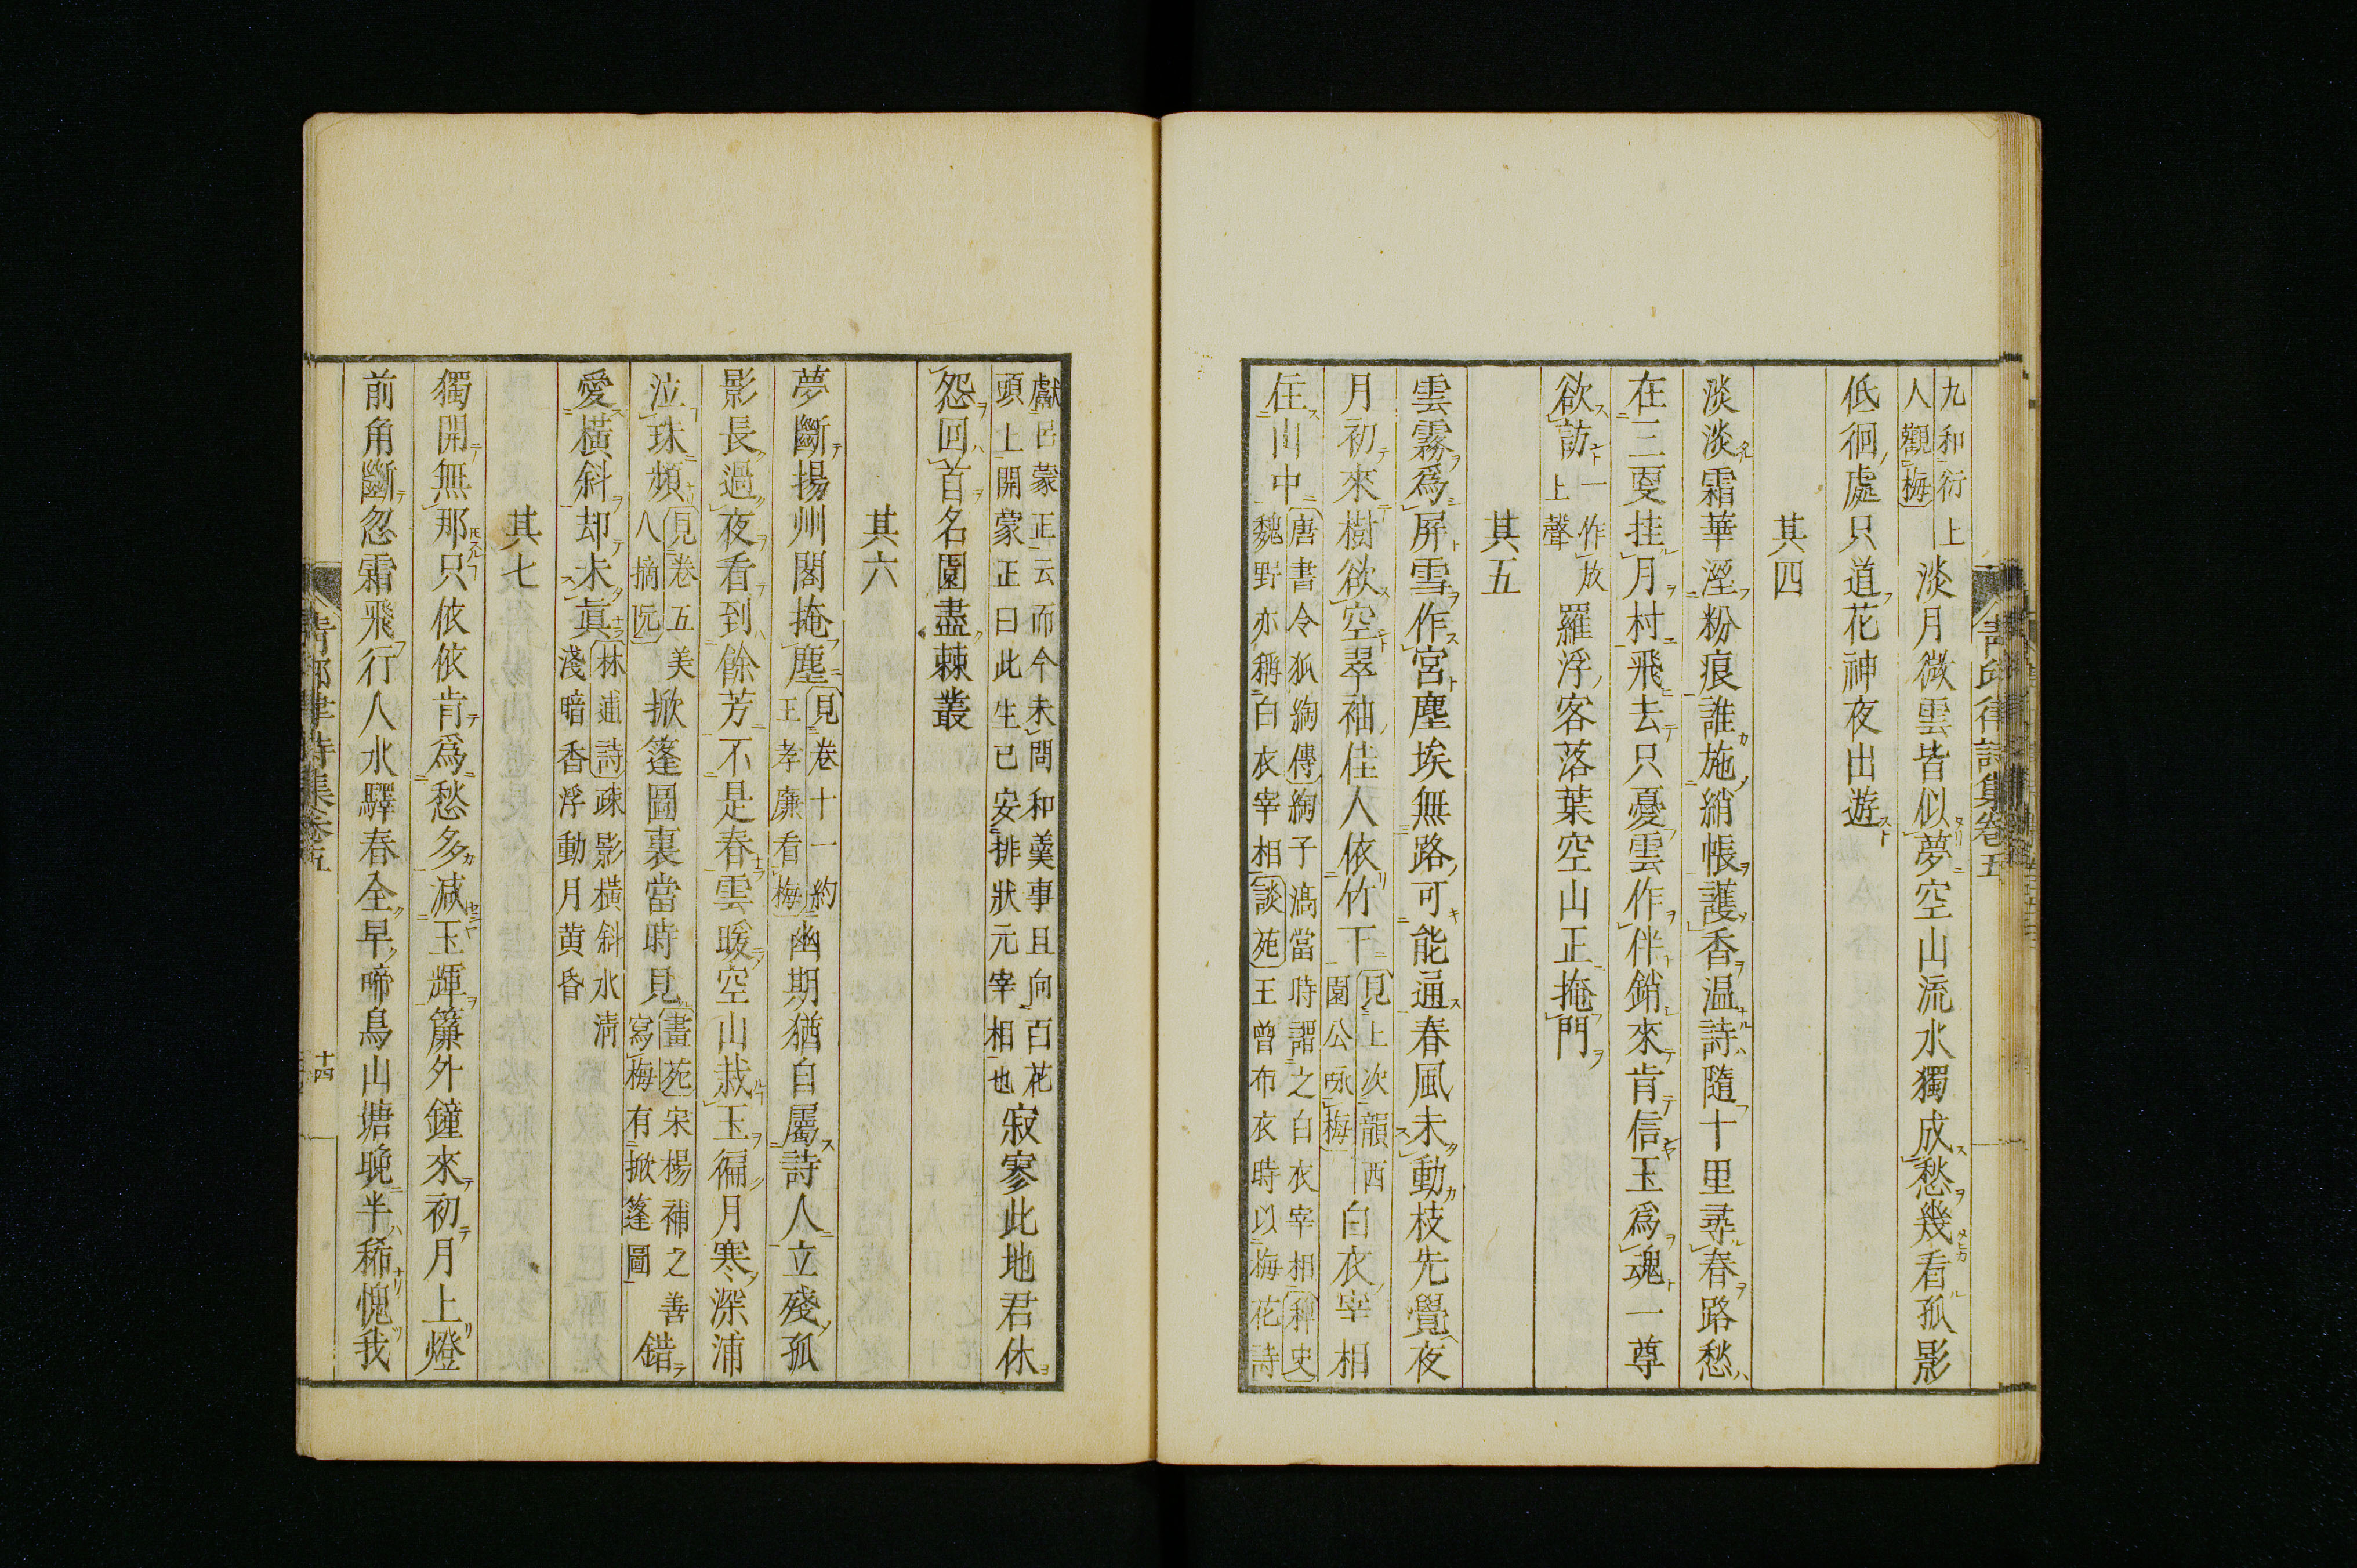 九和衍上
人觀梅
淡月微雲皆似夢空山流水獨成愁幾看孤影
低徊處只道花神夜出遊
其四
淡淡霜華溼粉痕誰施綃帳護香温詩隨十里尋春路愁
在三更挂月村飛去只憂雲作伴銷來肯信玉爲魂一尊
欲訪
一作放
上聲
羅浮客落葉空山正掩門
其五
雲霧爲屏雪作宮塵埃無路可能通春風未動枝先覺夜
月初來樹欲空翠袖佳人依竹下
見上次韻西
園公咏梅
白衣宰相
住山中
唐書令狐綯傳綯子滈當時謂之白衣宰相稗史
魏野亦稱白衣宰相談苑王曾布衣時以梅花詩
獻呂蒙正云而今未問和羹事且向百花
頭上開蒙正曰此生已安排狀元宰相也
寂寥此地君休
怨回首名園盡棘叢
其六
夢斷揚州閣掩塵
見卷十一約
王孝廉看梅
幽期猶自屬詩人立殘孤
影長過夜看到餘芳不是春雲暖空山栽玉徧月寒深浦
泣珠頻
見卷五美
八摘阮
掀篷圖裏當時見
畫苑宋楊補之善
寫梅有掀篷圖
錯
愛橫斜却未眞
林逋詩疎影橫斜水淸
淺暗香浮動月黄昏
其七
獨開無那只依依肯爲愁多减玉輝簾外鐘來初月上燈
前角斷忽霜飛行人水驛春全早啼鳥山塘晚半稀愧我
青邱律詩集卷五
十四
青邱律詩集卷五